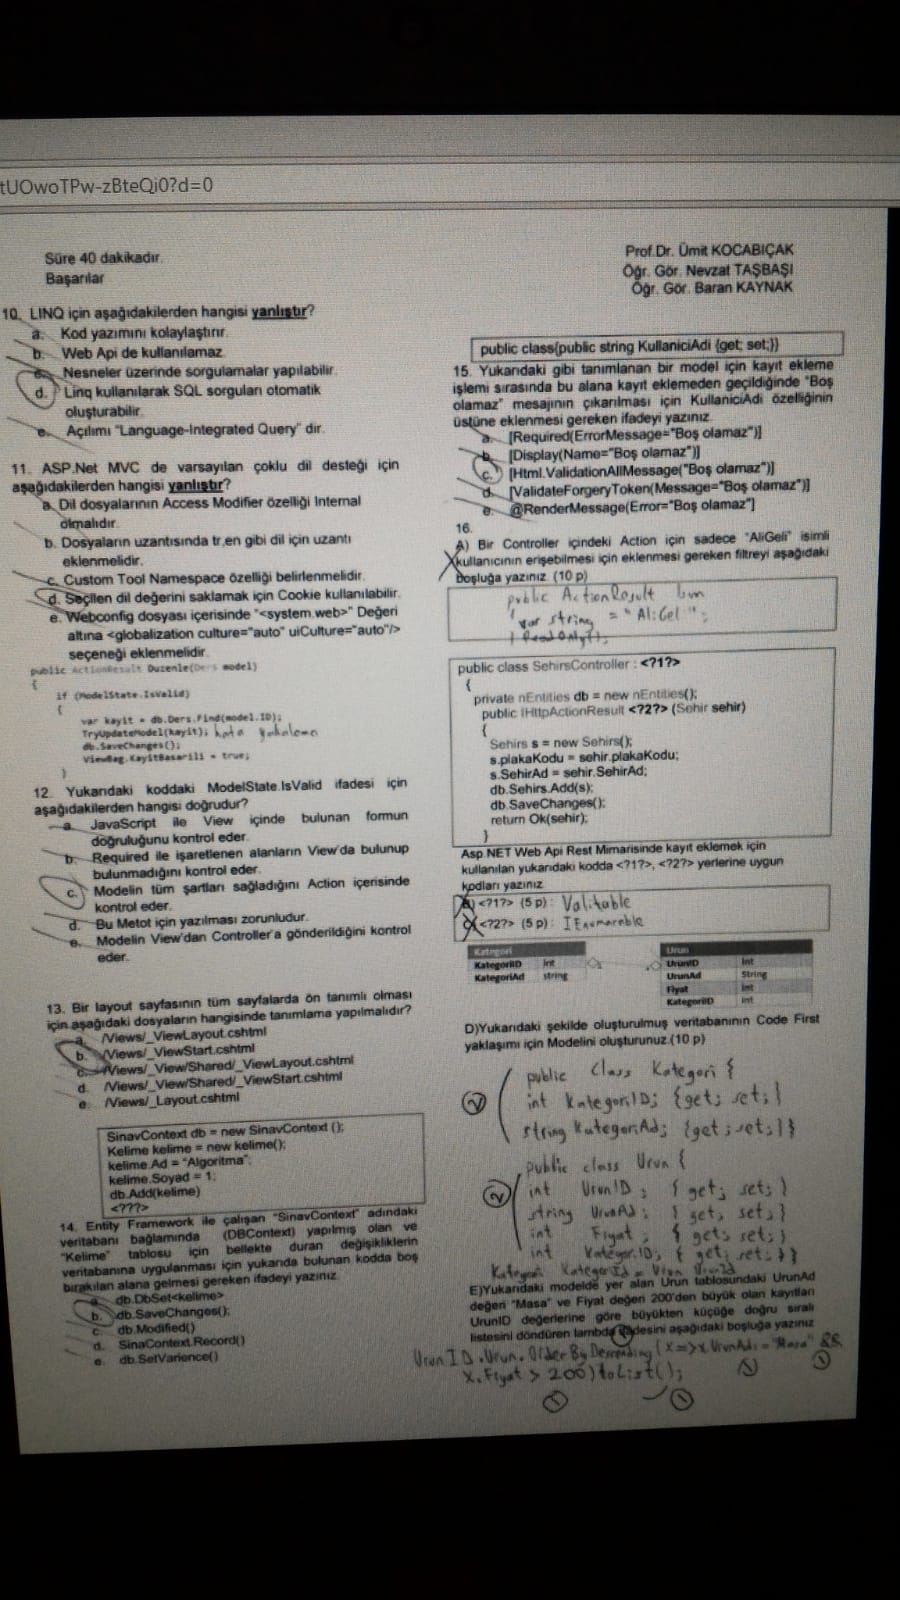 tUOwoTPw-zBteQj0?d=0
Süre 40 dakikadır.
Başarılar
Prof.Dr. Ümit KOCABIÇAK
Öğr. Gör. Nevzat TAŞBAŞI
Öğr. Gör. Baran KAYNAK
10. LINQ için aşağıdakilerden hangisi yanlıştır?
a. Kod yazımını kolaylaştırır.
b. Web Api de kullanılamaz
c. Nesneler üzerinde sorgulamalar yapılabilir.
d. Linq kullanılarak SQL sorguları otomatik
oluşturabilir.
e. Açılımı "Language-Integrated Query" dir.
11. ASP.Net MVC de varsayılan çoklu dil desteği için
aşağıdakilerden hangisi yanlıştır?
a. Dil dosyalarının Access Modifier özelliği Internal
olmalıdır.
b. Dosyaların uzantısında tr,en gibi dil için uzantı
eklenmelidir.
c. Custom Tool Namespace özelliği belirlenmelidir.
d. Seçilen dil değerini saklamak için Cookie kullanılabilir.
e. Webconfig dosyası içerisinde "<system.web>" Değeri
altına <globalization culture="auto" uiCulture="auto"/>
seçeneği eklenmelidir.
public ActionResult Duzenle(Ders model)
{
if (ModelState.IsValid)
{
var kayit = db.Ders.Find(model.ID);
TryUpdateModel(kayit); hata yakalama
db.SaveChanges();
ViewBag.KayitBasarili = true;
}
12. Yukarıdaki koddaki ModelState.IsValid ifadesi için
aşağıdakilerden hangisi doğrudur?
a. JavaScript ile View içinde bulunan formun
doğruluğunu kontrol eder.
b. Required ile işaretlenen alanların View'da bulunup
bulunmadığını kontrol eder.
c. Modelin tüm şartları sağladığını Action içerisinde
kontrol eder.
d. Bu Metot için yazılması zorunludur.
e. Modelin View'dan Controller'a gönderildiğini kontrol
eder.
13. Bir layout sayfasının tüm sayfalarda ön tanımlı olması
için aşağıdaki dosyaların hangisinde tanımlama yapılmalıdır?
a. /Views/_ViewLayout.cshtml
b. /Views/_ViewStart.cshtml
c. /Views/_View/Shared/_ViewLayout.cshtml
d. /Views/_View/Shared/_ViewStart.cshtml
e. /Views/_Layout.cshtml
SinavContext db = new SinavContext ();
Kelime kelime = new kelime();
kelime.Ad = "Algoritma";
kelime.Soyad = 1;
db.Add(kelime)
<???>
14. Entity Framework ile çalışan "SinavContext" adındaki
veritabanı bağlamında (DBContext) yapılmış olan ve
"Kelime" tablosu için bellekte duran değişikliklerin
veritabanına uygulanması için yukarıda bulunan kodda boş
bırakılan alana gelmesi gereken ifadeyi yazınız.
a. db.DbSet<kelime>
b. db.SaveChanges();
c. db.Modified()
d. SinaContext.Record()
e. db.SetVarience()
public class{public string KullaniciAdi {get; set;}}
15. Yukarıdaki gibi tanımlanan bir model için kayıt ekleme
işlemi sırasında bu alana kayıt eklemeden geçildiğinde "Boş
olamaz" mesajının çıkarılması için KullaniciAdi özelliğinin
üstüne eklenmesi gereken ifadeyi yazınız.
a. [Required(ErrorMessage="Boş olamaz")]
b. [Display(Name="Boş olamaz")]
c. [Html.ValidationAllMessage("Boş olamaz")]
d. [ValidateForgeryToken(Message="Boş olamaz")]
e. @RenderMessage(Error="Boş olamaz"]
16.
A) Bir Controller içindeki Action için sadece "AliGeli" isimli
kullanıcının erişebilmesi için eklenmesi gereken filtreyi aşağıdaki
boşluğa yazınız. (10 p)
public ActionResult
var string = "AliGel";
public class SehirsController : <?1?>
{
private nEntities db = new nEntities();
public IHttpActionResult <?2?> (Sehir sehir)
{
Sehirs s = new Sehirs();
s.plakaKodu = sehir.plakaKodu;
s.SehirAd = sehir.SehirAd;
db.Sehirs.Add(s);
db.SaveChanges();
return Ok(sehir);
}
Asp.NET Web Api Rest Mimarisinde kayıt eklemek için
kullanılan yukarıdaki kodda <?1?>, <?2?> yerlerine uygun
kodları yazınız
<?1?> (5 p): Valitable
<?2?> (5 p): IEnumarable
Kategori
KategoriID int
KategoriAd string
Urun
UrunID int
UrunAd String
Fiyat int
KategoriID int
D)Yukarıdaki şekilde oluşturulmuş veritabanının Code First
yaklaşımı için Modelini oluşturunuz.(10 p)
public Class Kategori {
int KategoriID; {get; set;}
string KategoriAd; {get; set;}}
public class Urun {
int UrunID; { get; set; }
string UrunAd; { get; set; }
int Fiyat; { get; set; }
int KategoriID; { get; set; }}
Kategori KategoriId = Urun UrunId
E)Yukarıdaki modelde yer alan Urun tablosundaki UrunAd
değeri "Masa" ve Fiyat değeri 200'den büyük olan kayıtları
UrunID değerlerine göre büyükten küçüğe doğru sıralı
listesini döndüren lambda ifadesini aşağıdaki boşluğa yazınız
UrunID.Urun.OrderByDescending(x=>x.UrunAd="Masa" &&
x.Fiyat > 200)toList();